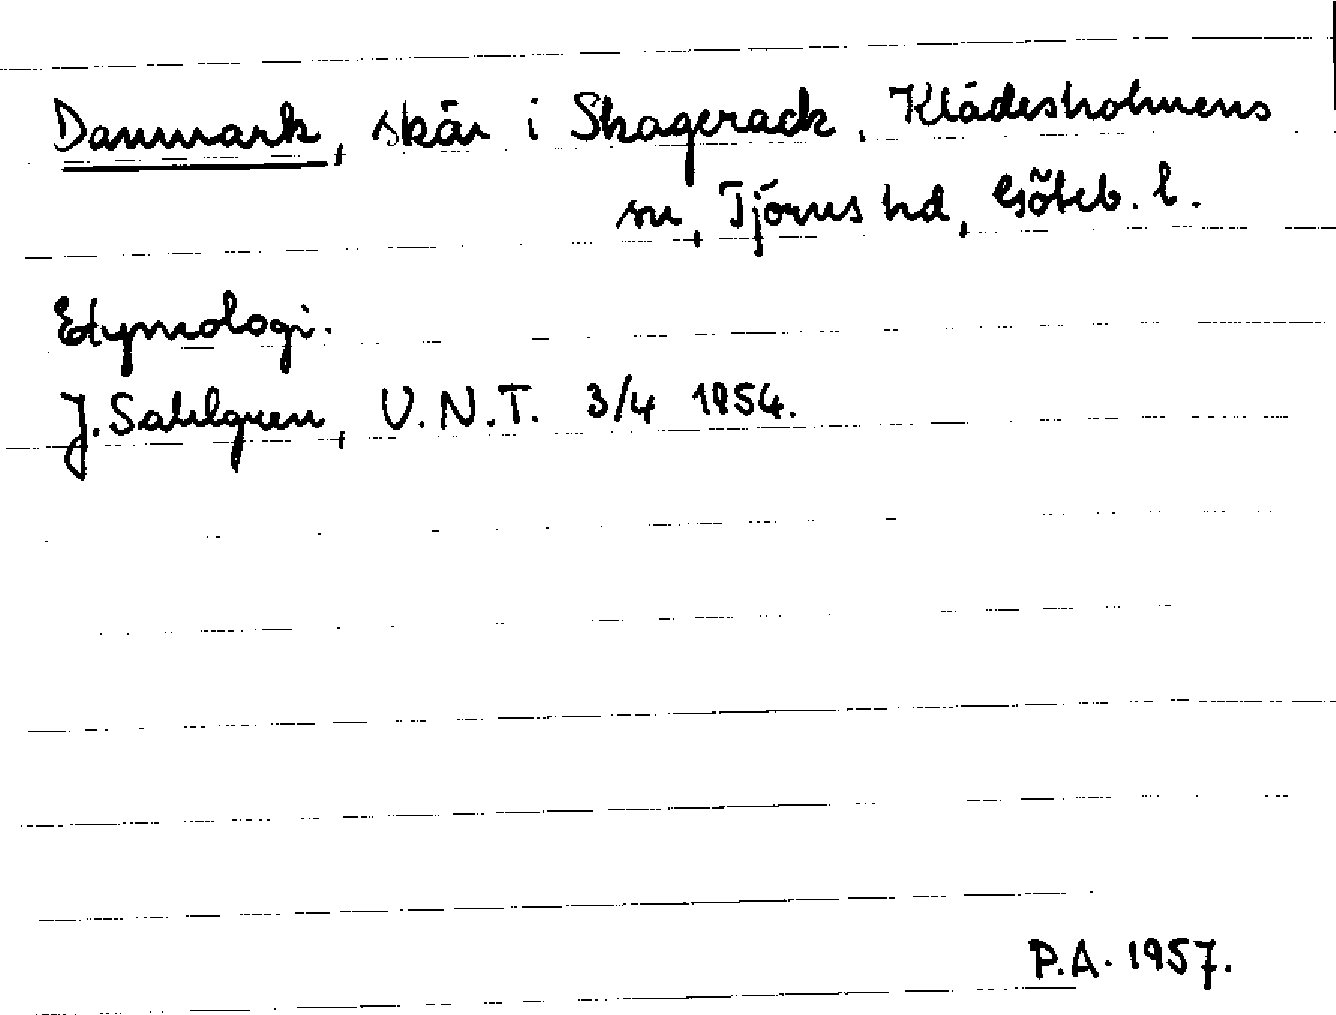 Danmark, skär i Skagerack, Klädesholmens
sn, Tjörns hd, Göteb. l.
Etymologi.
J. Sahlgren, U.N.T. 3/4 1954.
P.A. 1957.